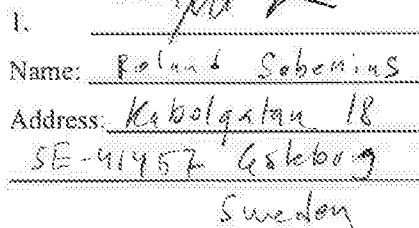 1.
Name: Roland Sebenius
Address: Kabolgatan 18
SE-41457 Göteborg
Sweden